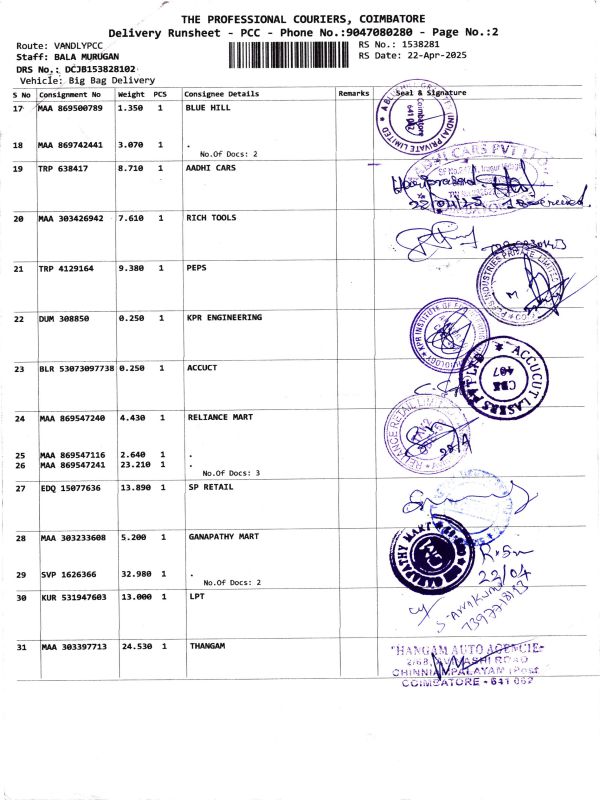 THE PROFESSIONAL COURIERS, COIMBATORE
Delivery Runsheet - PCC - Phone No.:9047080280 - Page No.:2
Route: VANDLYPCC
RS No.: 1538281
Staff: BALA MURUGAN
RS Date: 22-Apr-2025
DRS No.: DCJB153828102
Vehicle: Big Bag Delivery
S No Consignment No Weight PCS Consignee Details Remarks Seal & Signature
17 MAA 869500789 1.350 1 BLUE HILL
(INDIA) PRIVATE LIMITED
Coimbatore
18 MAA 869742441 3.070 1 .
No.Of Docs: 2
19 TRP 638417 8.710 1 AADHI CARS
CARS PVT LTD
22/04/25
20 MAA 303426942 7.610 1 RICH TOOLS
21 TRP 4129164 9.380 1 PEPS
INDUSTRIES PRIVATE LIMITED
22 DUM 308850 0.250 1 KPR ENGINEERING
KPR INSTITUTE OF
23 BLR 53073097738 0.250 1 ACCUCT
ACCUCUT LASERS PVT LTD
CBE
407
24 MAA 869547240 4.430 1 RELIANCE MART
RELIANCE RETAIL LIMITED
25 MAA 869547116 2.640 1 .
26 MAA 869547241 23.210 1 .
No.Of Docs: 3
27 EDQ 15077636 13.890 1 SP RETAIL
28 MAA 303233608 5.200 1 GANAPATHY MART
GANAPATHY MART
22/04
29 SVP 1626366 32.980 1 .
No.Of Docs: 2
30 KUR 531947603 13.000 1 LPT
31 MAA 303397713 24.530 1 THANGAM
THANGAM AUTO AGENCIE
ROAD
CHINNIAMPALAYAM (Post
COIMBATORE - 641 062